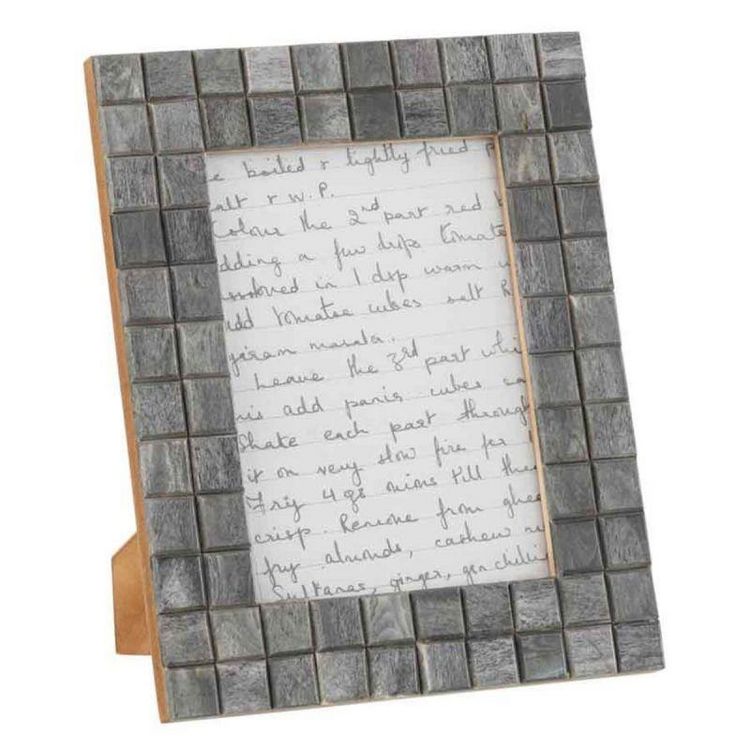 e boiled & lightly fried
alt & w.P.
Colour the 2nd part red
dding a few drops tomato
ssolved in 1 dsp warm
add tomatoe cubes salt
garam masala.
Leave the 3rd part whi
his add panir cubes
Shake each part through
it on very slow fire for
Fry 4 gs onions till the
crisp. Remove from ghee
fry almonds, cashew nu
Sultanas, ginger, gen chilli